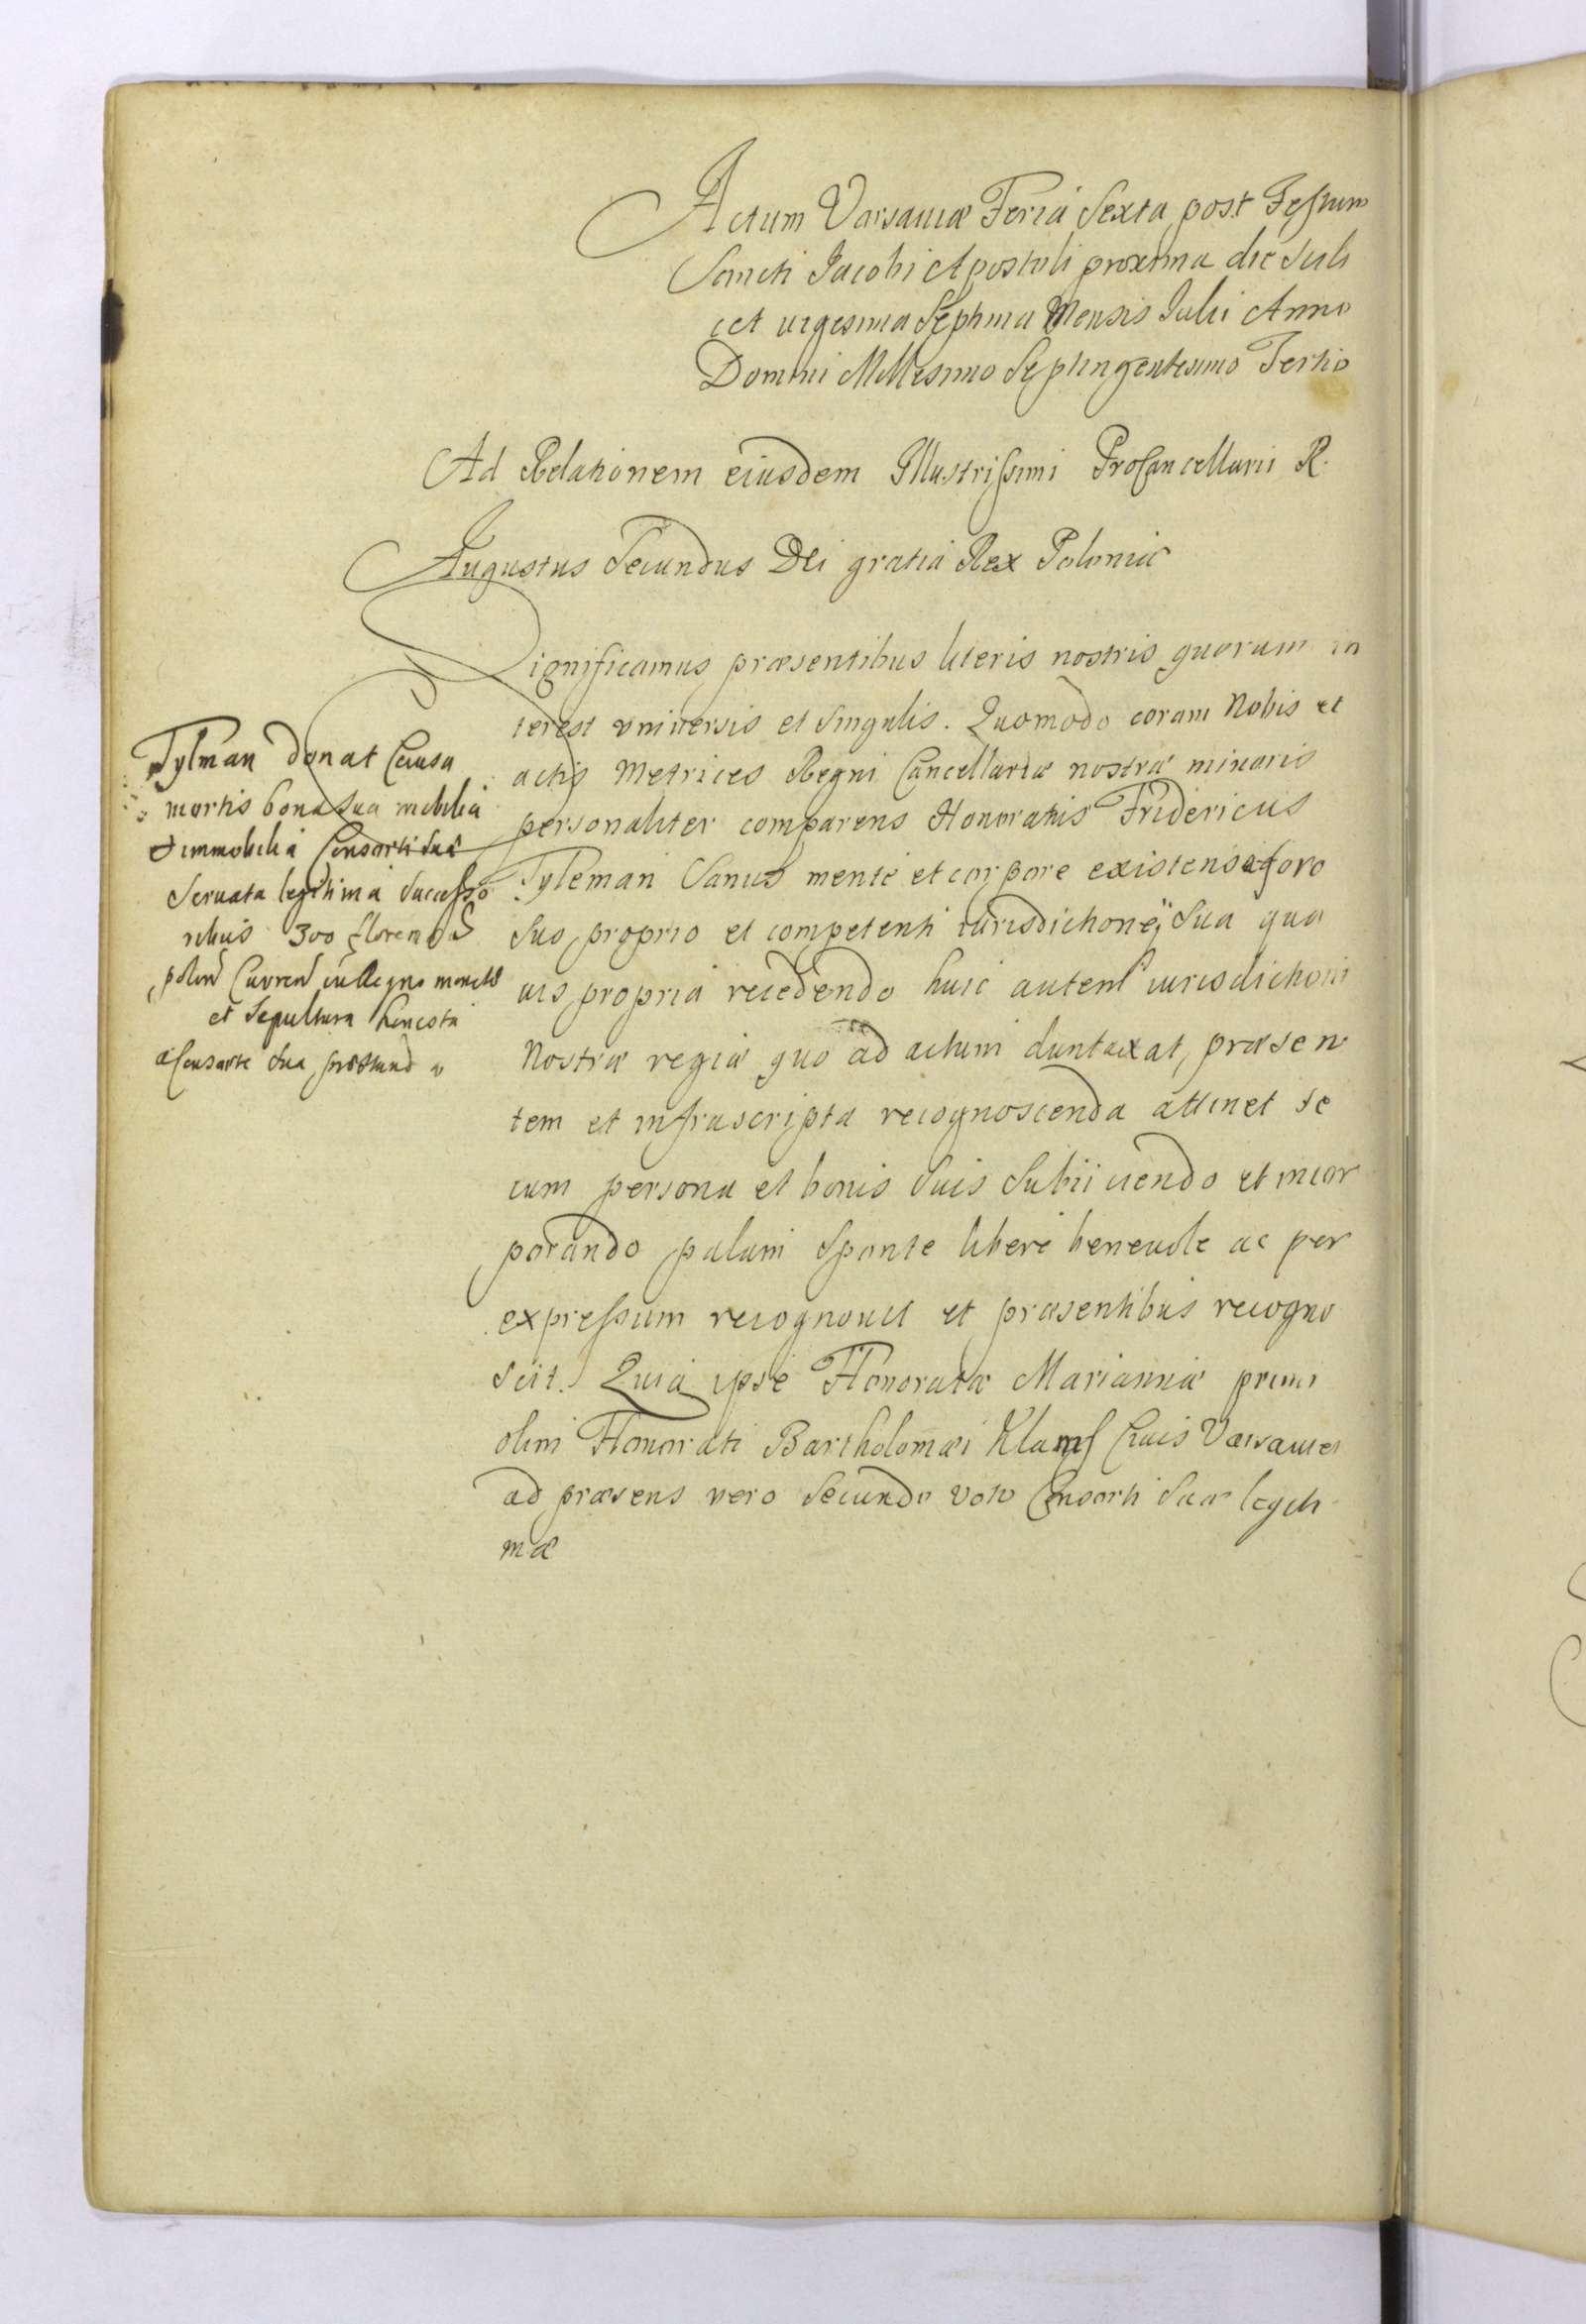 Actum Varsauiæ Feriá Sexta post Festum
Sancti Jacobi Apostoli proxima die scili
cet uigesima Septima Mensis Julii Anno
Domini Millesimo Septingentesimo Tertio
Ad Relationem eiusdem Illustrissimi ProCancellarii R.
Augustus Secundus Dei gratiá Rex Poloniæ
Significamus præsentibus literis nostris quorum in
terest vniuersis et singulis. Quomodo coram Nobis et
actis Metrices Regni Cancellariæ nostræ minoris
personaliter comparens Honoratus Fridericus
Tyleman Sanus mente et corpore existens a foro
suo proprio et competenti iurisdictione sua qua
uis propriá recedendo huic autem iurisdictioni
Nostræ regiæ quo ad actum duntaxat præsen
tem et infrascripta recognoscenda attinet se
cum persona et bonis suis subiiciendo et incor
porando palam sponte liberé beneuole ac per
expressum recognouit et præsentibus recogno
scit. Quiá ipse Honoratæ Mariannæ primi
olim Honorati Bartholomæi Ciuis Varsauien
ad præsens vero secundo voto Consorti suæ legiti
mæ
Tylman donat Causa
mortis bona sua mobilia
et immobilia Consorti suæ
seruata legitima successo
ribus 300 florenos
polon Curren in Regno monetæ
et sepultura honesta
a Consorte sua præstand